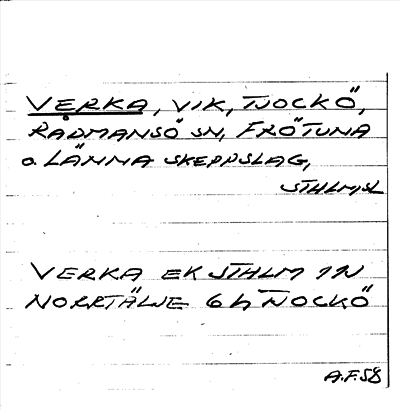 VERKA, VIK, TJOCKÖ,
RÅDMANSÖ SN, FRÖTUNA
o. LÄNNA SKEPPSLAG,
STHLMSL
VERKA EK STHLM 1N
NORRTÄLJE 6h TJOCKÖ
A.F.58